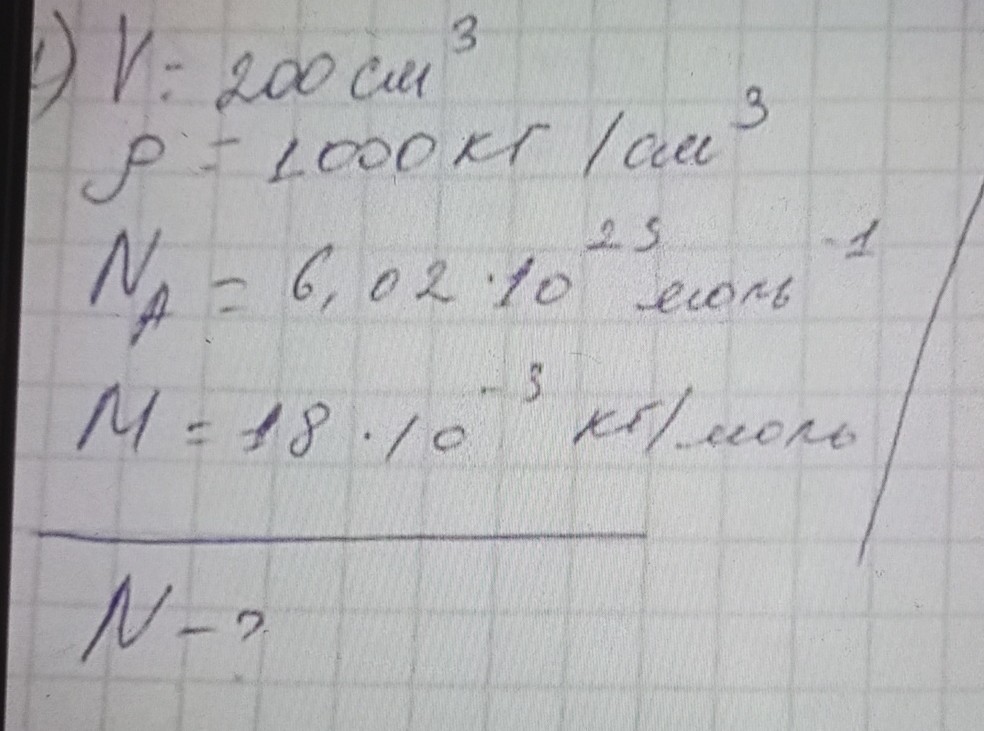 1) V = 200 см³
ρ = 1000 кг/см³
N_A = 6,02 · 10²³ моль⁻¹
M = 18 · 10⁻³ кг/моль
N - ?